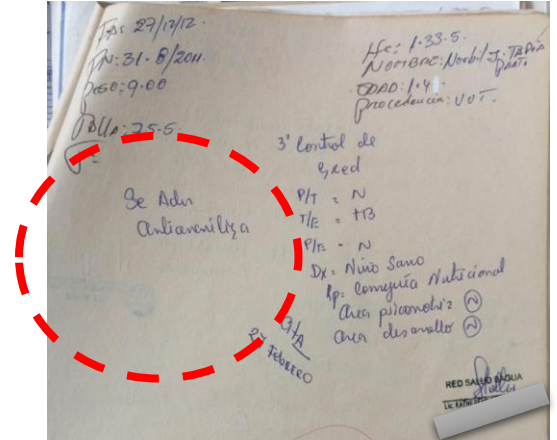 FA: 27/12/12.
FN: 31-8/2011.
Peso: 9.00
Talla: 75.5.
T:
Se Adm
Antiamarílica
Hc: 1.33.5.
NOMBRE: Norbil J. TAPIA
EDAD: 1.4
Procedencia: UUT.
3º Control de
Cred
P/T = N
T/E = TB
P/E = N
Dx = Niño Sano
Rp = Consejería Nutricional
Area psicomotriz N
Area desarrollo N
CITA
27 FEBRERO
RED SALUD BAGUA